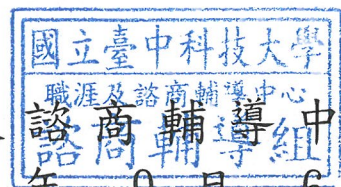 國立臺中科技大學
職涯及諮商輔導中心
諮商輔導中
諮商輔導組
年 9 月 6